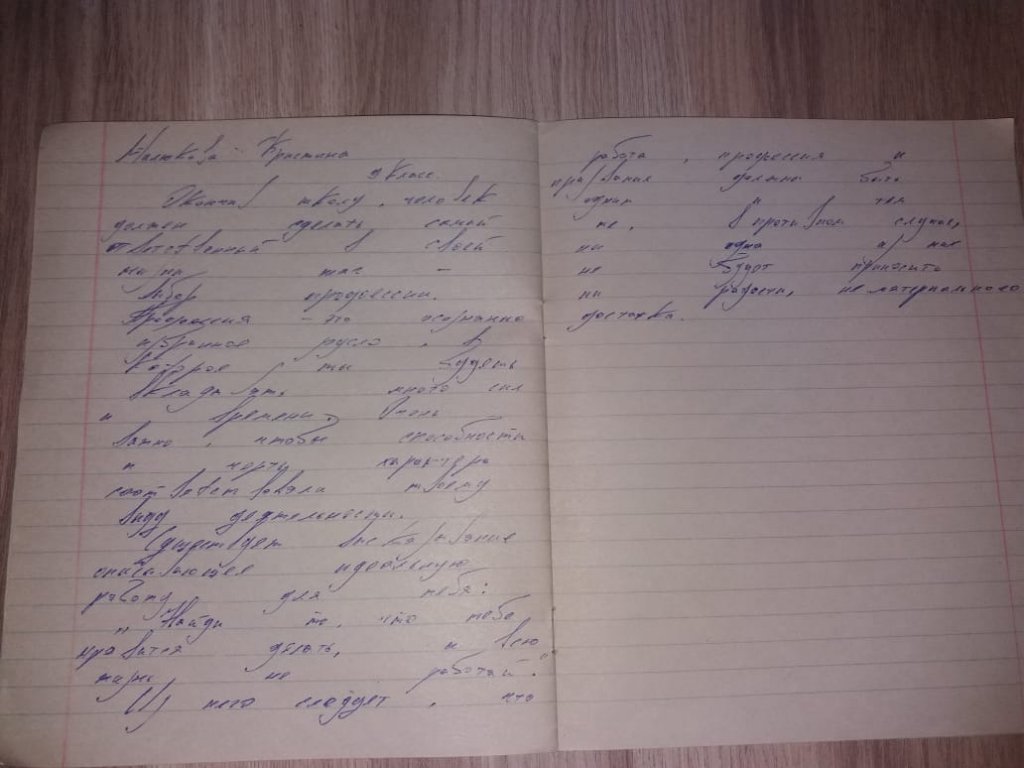 Кристина
9 класс
Окончив школу, человек
должен сделать самый
ответственный в своей
жизни шаг -
выбор профессии.
Профессия - это осознанно
избранное русло, в
которое ты будешь
вкладывать много сил
и времени. Очень
важно, чтобы способности
и черты характера
соответствовали твоему
виду деятельности.
Существует высказывание
идеальную
работу для тебя:
"Найди то, что тебе
нравится делать, и всю
жизнь не работай."
Из него следует, что
работа, профессия и
призвание должны быть
одним и тем
же, в противном случае,
ни одно из них
не будет приносить
ни радости, ни материального
достатка.